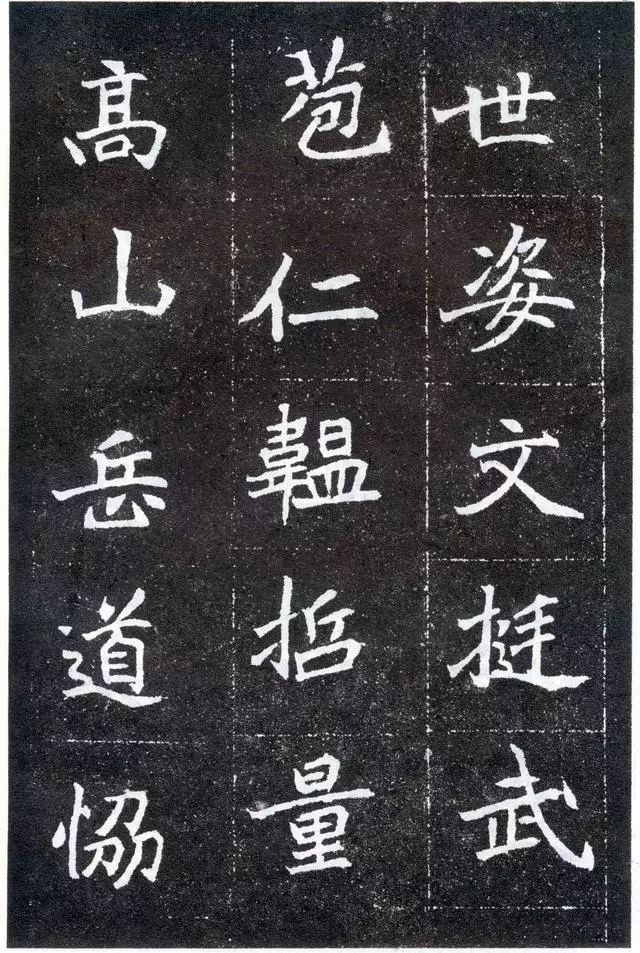 世姿文挺武
苞仁韞哲量
高山岳道恊